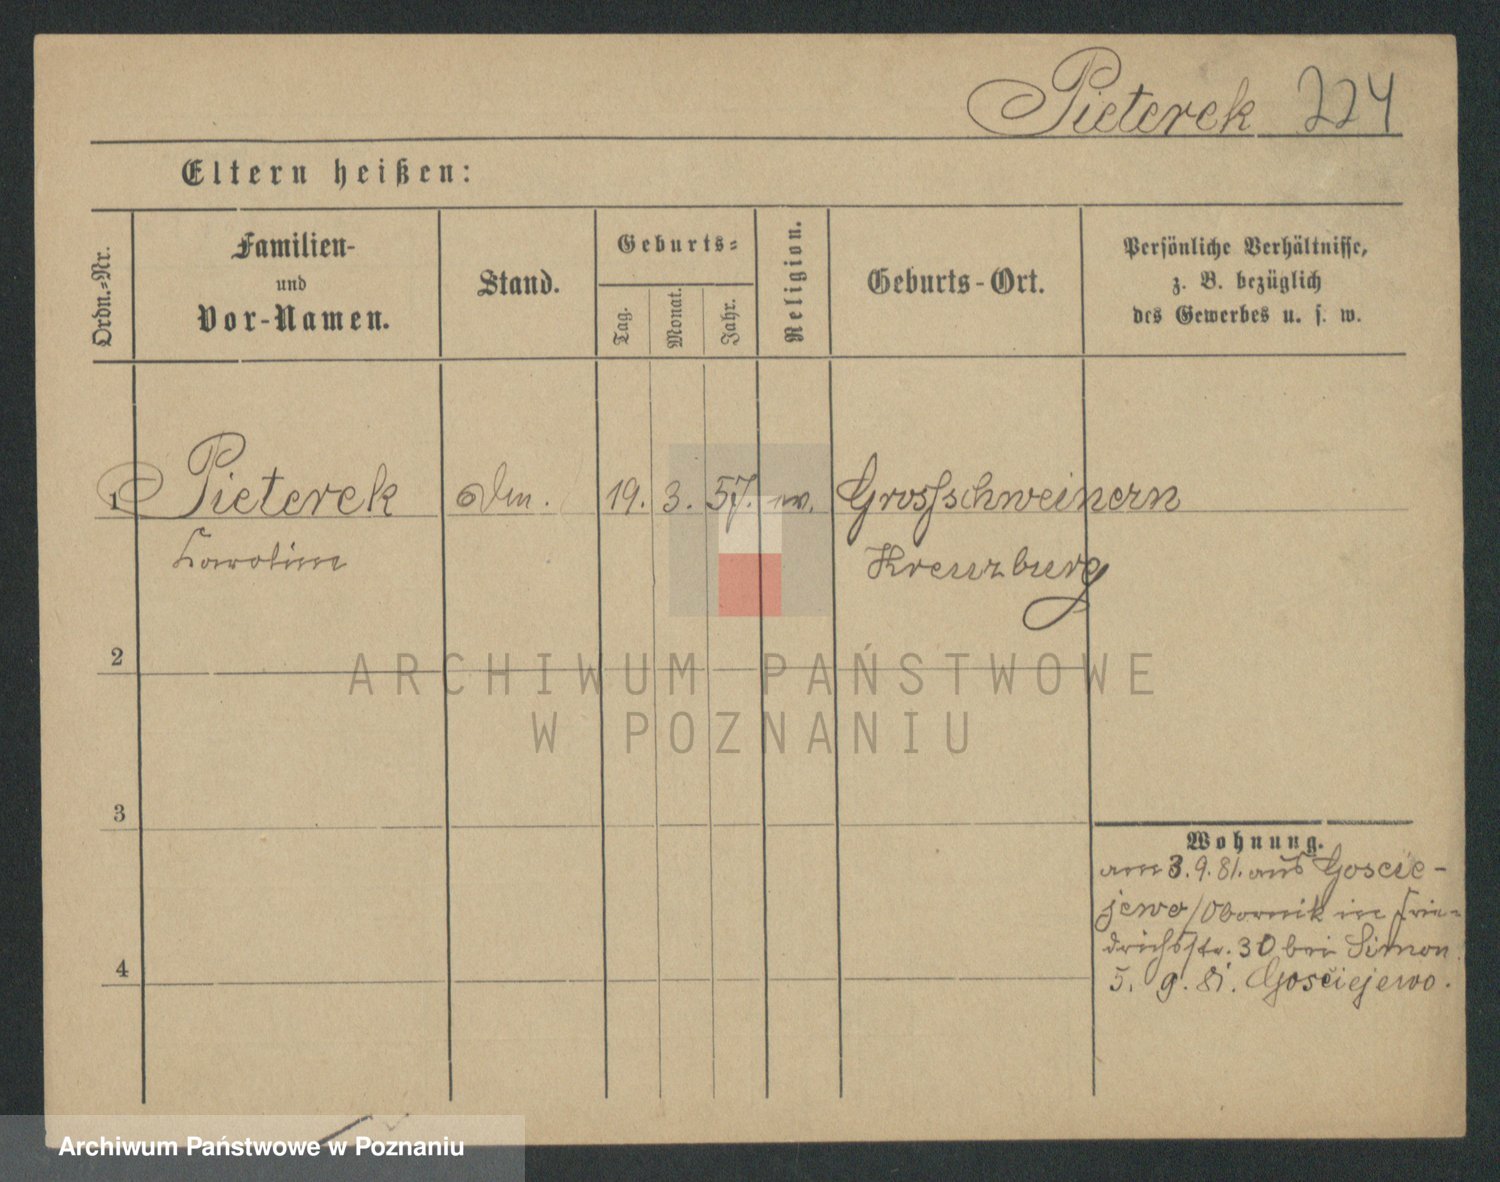 Pieterek 224
Eltern heißen:
Ordn.-Nr.
Familien-
und
Vor-Namen.
Stand.
Geburts-
Tag.
Monat.
Jahr.
Religion.
Geburts-Ort.
Persönliche Verhältnisse,
z. B. bezüglich
des Gewerbes u. s. w.
1 Pieterek 19. 3. 57. ev. Grossschweinern
Karoline Kreuzburg
2
3
4
Wohnung.
am 3.9.81. aus Goscie-
jewo/Obornik in Frie-
drichsstr. 30 bei Simon.
5. 9. 81. Gościejewo.
ARCHIWUM PAŃSTWOWE
W POZNANIU
Archiwum Państwowe w Poznaniu